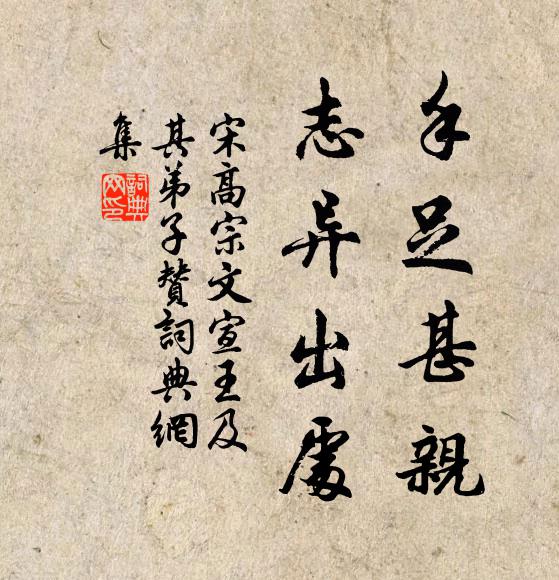 手足甚親
志异出處
宋高宗文宣王及
其弟子贊詞典網
集
詞典
网印